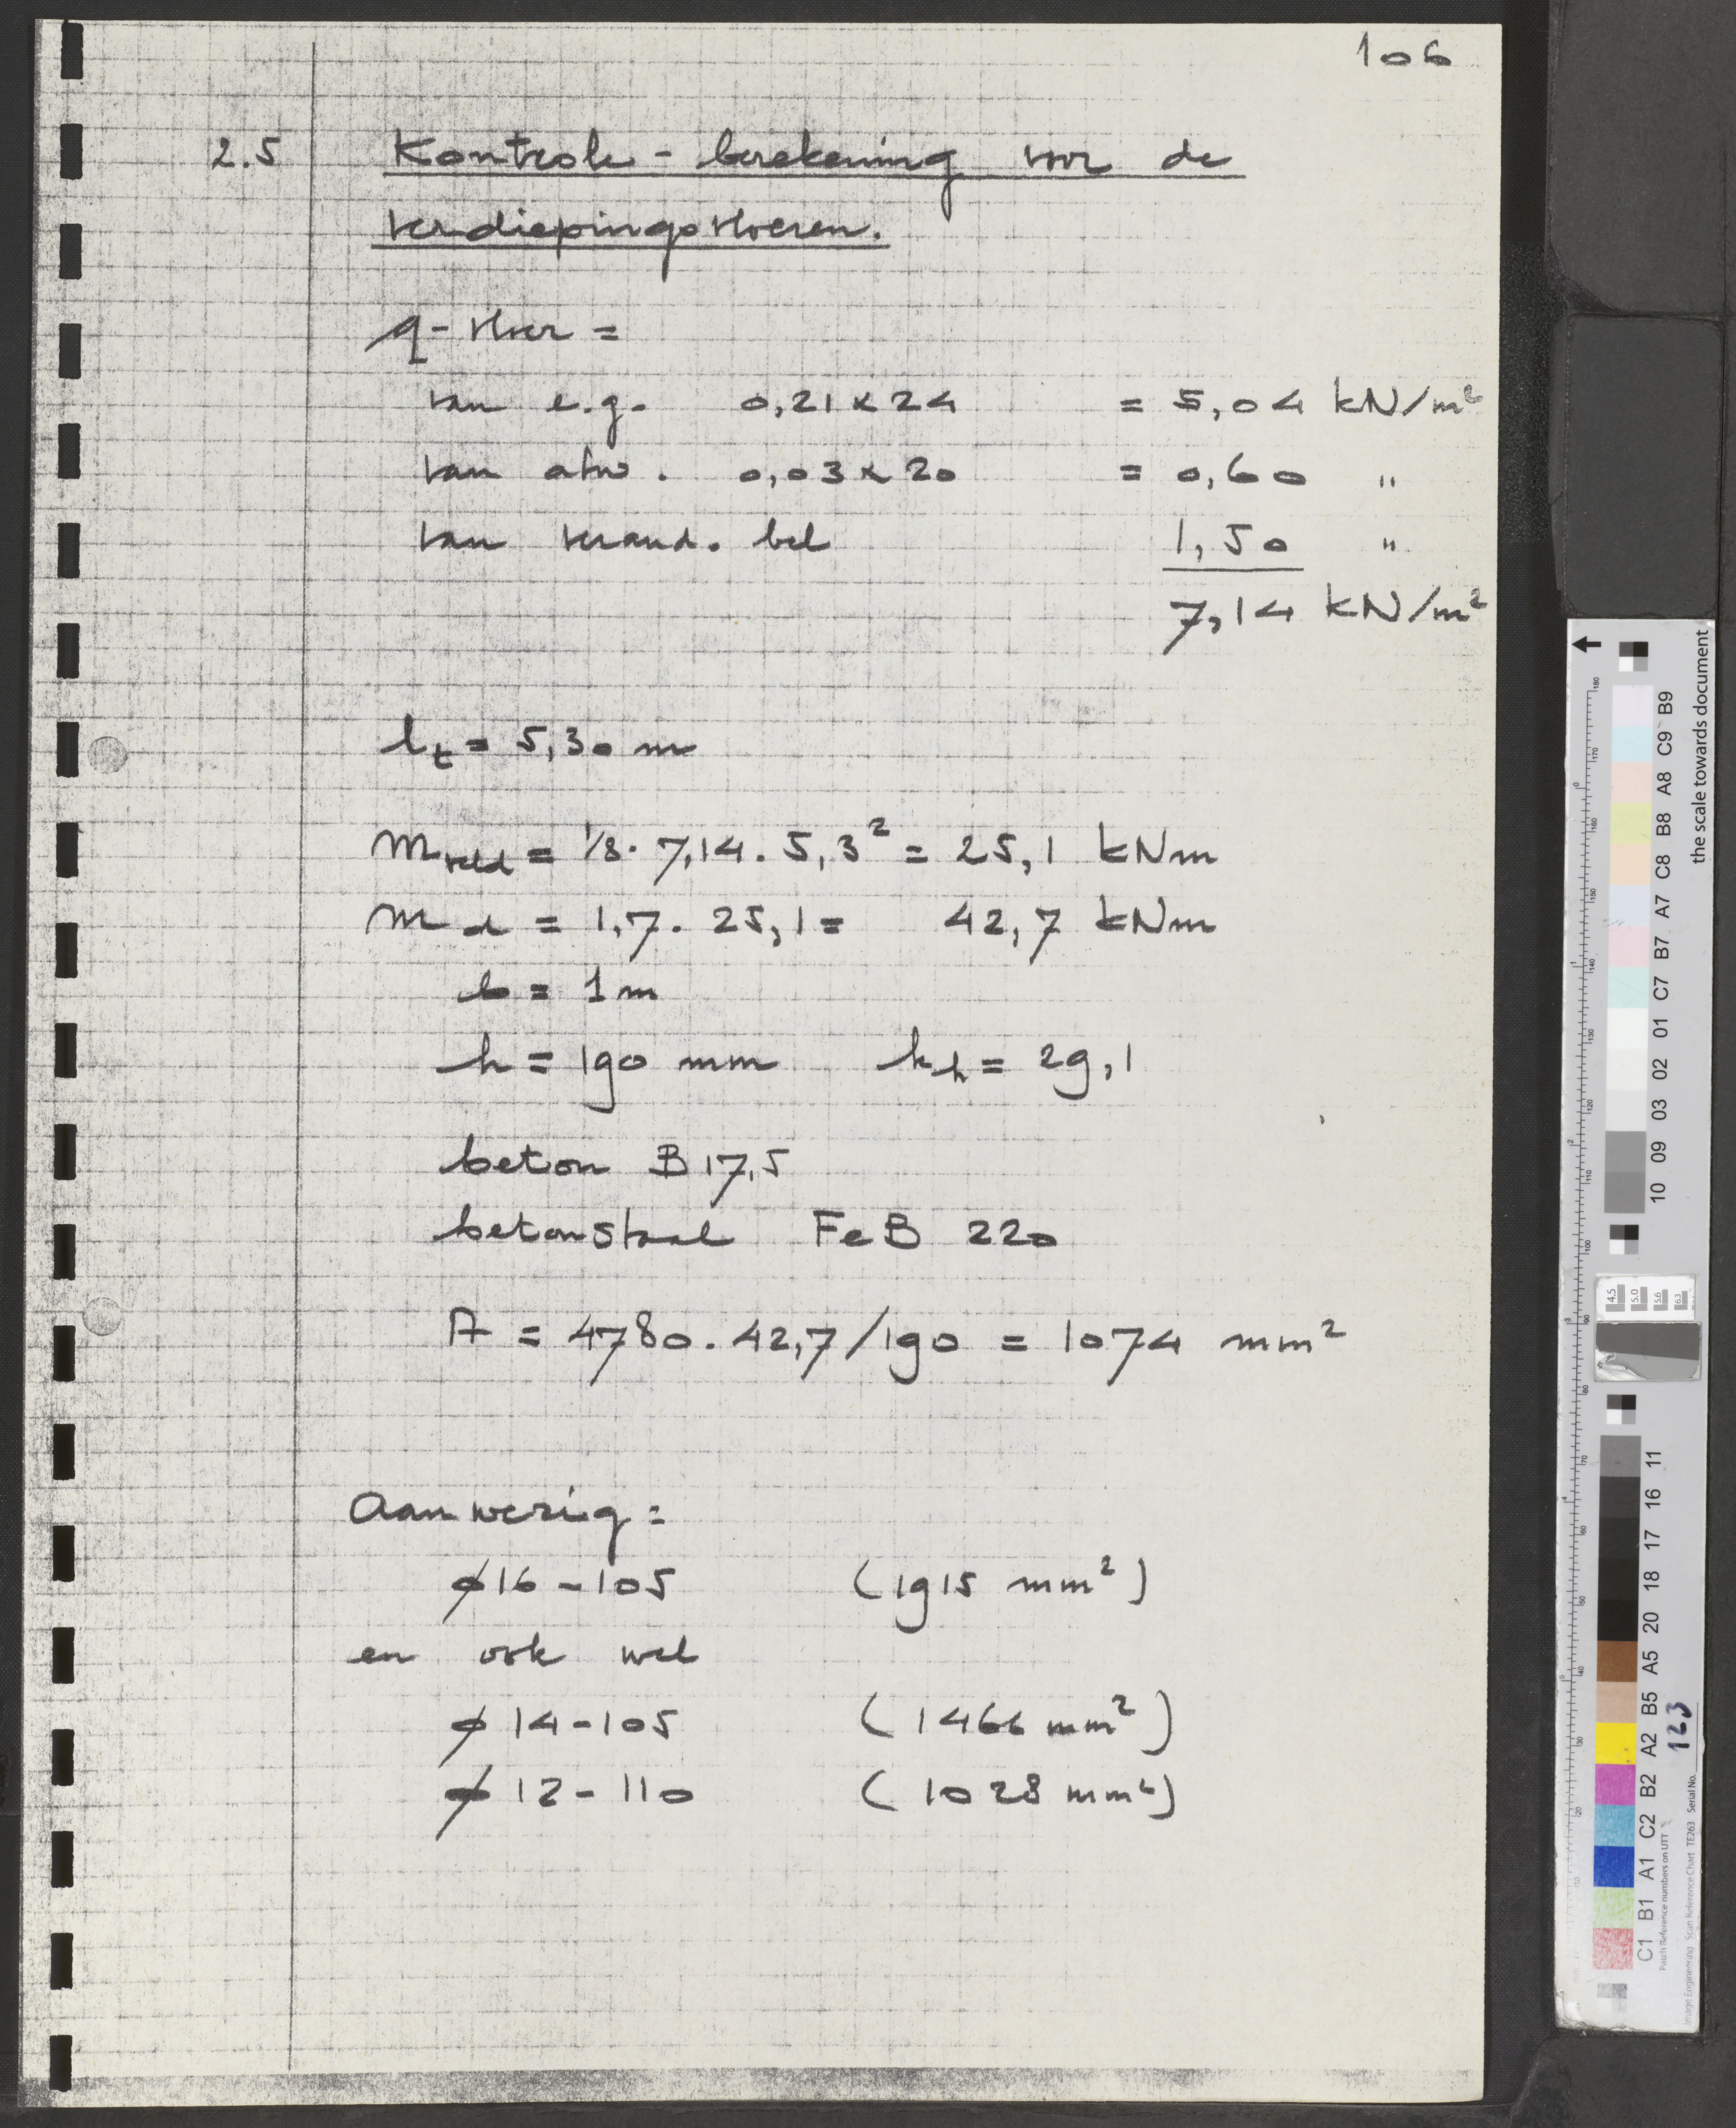 106
2.5 Kontrole - berekening voor de
verdiepingsvloeren.
q - vloer =
van e.g. 0,21 x 24 = 5,04 kN/m²
van afw. 0,03 x 20 = 0,60 "
van verand. bel 1,50 "
7,14 kN/m²
lt = 5,30 m
Mveld = 1/8 . 7,14 . 5,3² = 25,1 kNm
Md = 1,7 . 25,1 = 42,7 kNm
b = 1 m
h = 190 mm kh = 29,1
beton B 17,5
betonstaal FeB 220
A = 4780 . 42,7 / 190 = 1074 mm²
Aanwezig =
ø16 - 105 (1915 mm²)
en ook wel
ø 14 - 105 (1466 mm²)
ø 12 - 110 (1028 mm²)
the scale towards document
B9
C9
A8
B8
C8
A7
B7
C7
01
02
03
09
10
11
16
17
18
20
A5
B5
A2
B2
C2
A1
B1
C1
4.5
5.0
5.6
6.3
Patch Reference numbers on UTT
Image Engineering Scan Reference Chart TE263 Serial No. 123